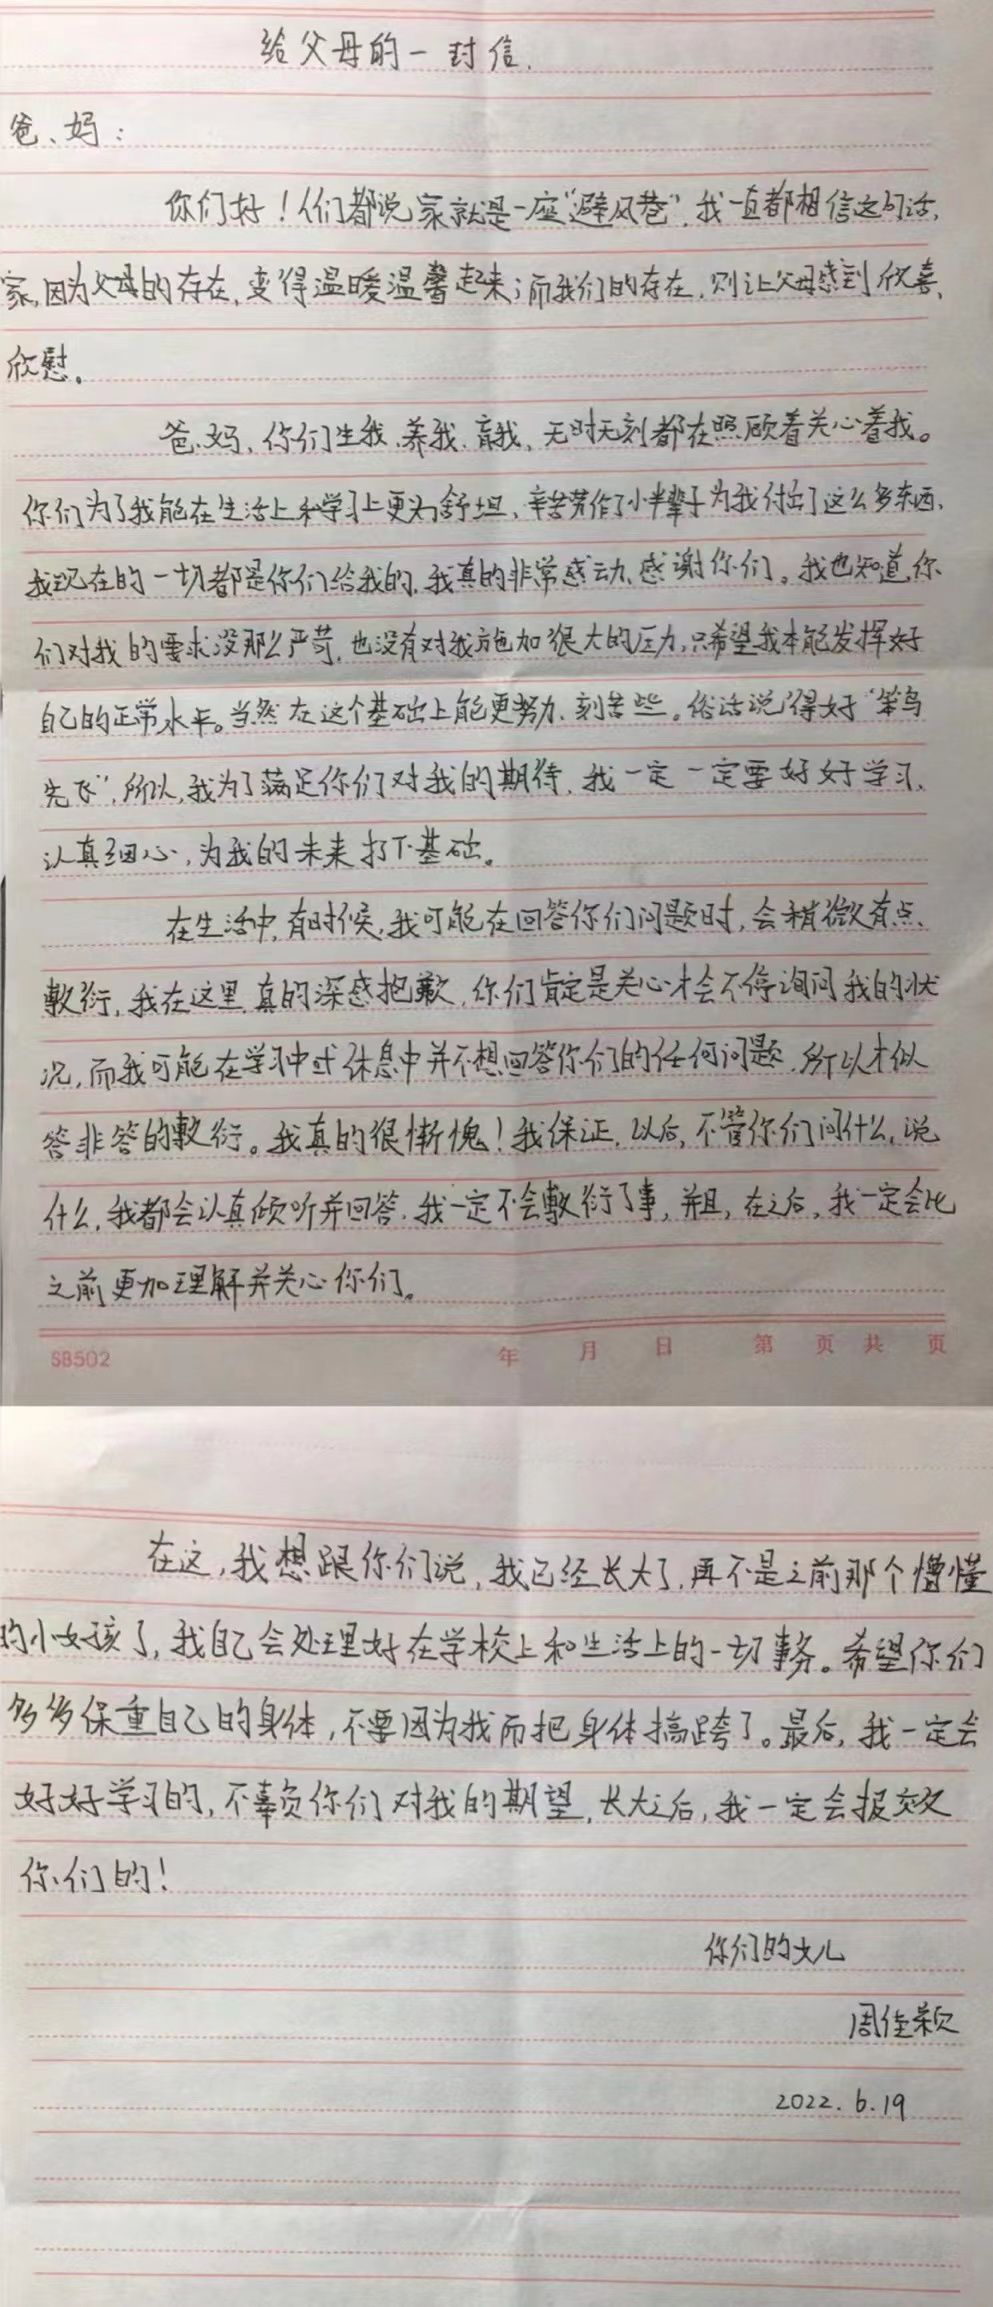 给父母的一封信.
爸、妈：
你们好！人们都说家就是一座“避风巷”，我一直都相信这句话，
家，因为父母的存在，变得温暖温馨起来；而我们的存在，则让父母感到欣喜、
欣慰。
爸、妈，你们生我、养我、育我，无时无刻都在照顾着关心着我。
你们为了我能在生活上和学习上更为舒坦，辛苦劳作了小半辈子为我付出了这么多东西，
我现在的一切都是你们给我的，我真的非常感动、感谢你们。我也知道，你
们对我的要求没那么严苛，也没有对我施加很大的压力，只希望我本能发挥好
自己的正常水平。当然在这个基础上能更努力、刻苦些。俗话说得好“笨鸟
先飞”，所以，我为了满足你们对我的期待，我一定一定要好好学习，
认真细心，为我的未来打下基础。
在生活中，有时候，我可能在回答你们问题时，会稍微有点、
敷衍，我在这里，真的深感抱歉，你们肯定是关心才会不停询问我的状
况，而我可能在学习中或休息中并不想回答你们的任何问题，所以才似
答非答的敷衍。我真的很惭愧！我保证，以后，不管你们问什么，说
什么，我都会认真倾听并回答，我一定不会敷衍了事，并且，在之后，我一定会比
之前更加理解并关心你们。
SB502 年 月 日 第 页 共 页
在这，我想跟你们说，我已经长大了，再不是之前那个懵懂
的小女孩了，我自己会处理好在学校上和生活上的一切事务。希望你们
多多保重自己的身体，不要因为我而把身体搞跨了。最后，我一定会
好好学习的，不辜负你们对我的期望，长大之后，我一定会报效
你们的！
你们的女儿
周佳颖
2022.6.19